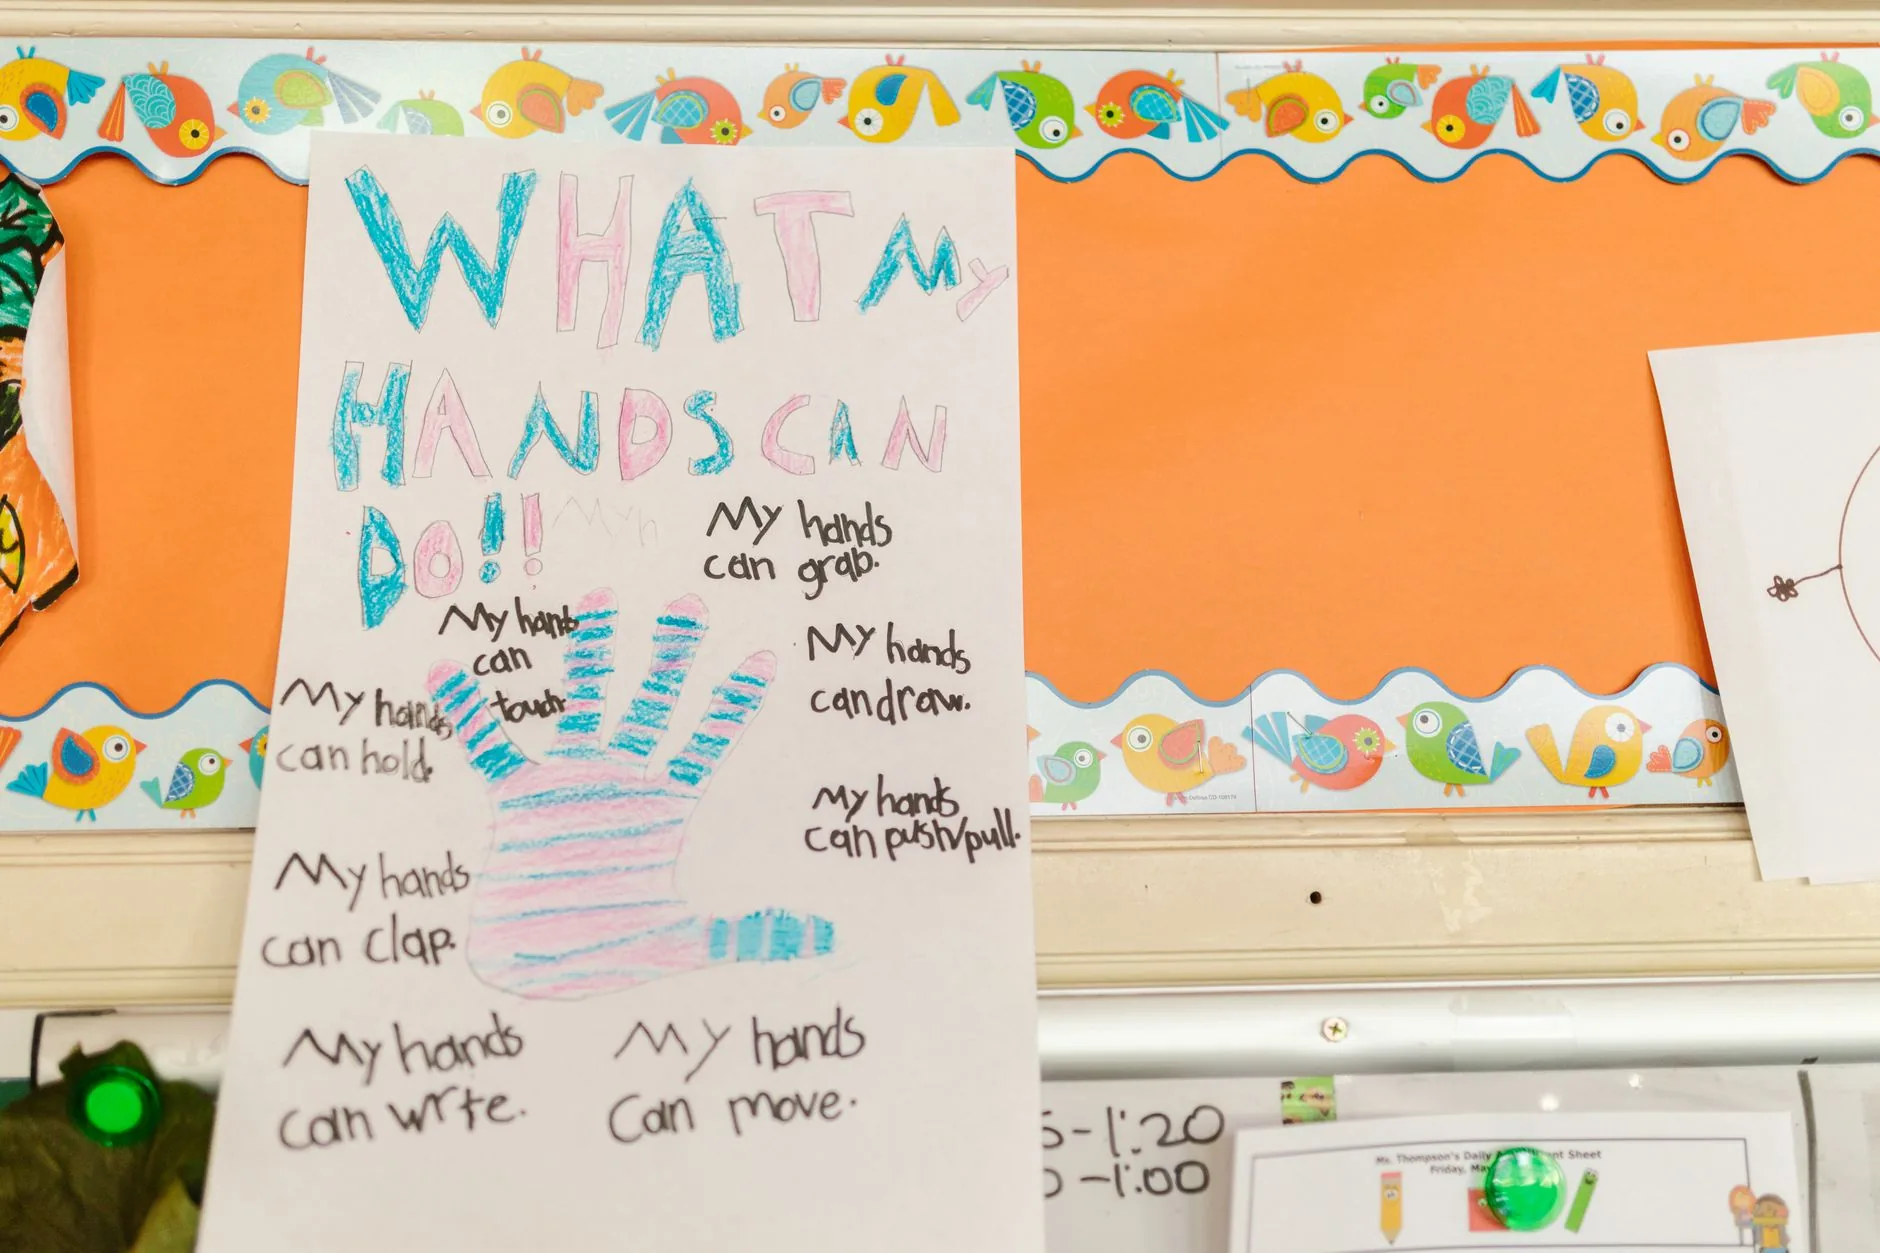 WHAT My
HANDS CAN
DO!!
Myh
My hands
can grab.
My hands
can
touch
My hands
can draw.
My hands
can hold.
My hands
can push/pull.
My hands
can clap.
My hands
can write.
My hands
Can move.
-1:20
-1:00
Ms. Thompson's Daily Sheet
Friday, May